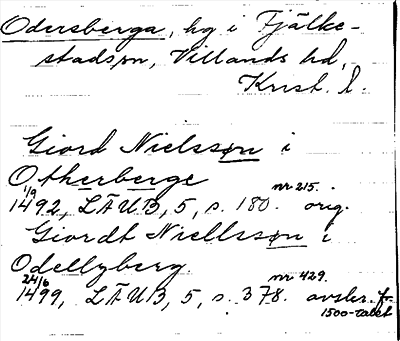 Odersberga, hg i Fjälke-
stadssn, Villands hd,
Krist. l.
Giord Nielsson i
Otherberge
1/9 nr 215.
1492, LÄUB, 5, s. 180. orig.
Giordt Niellsson i
Odellzberg
24/6 nr 429.
1499, LÄUB, 5, s. 378. avskr. fr.
1500-talet